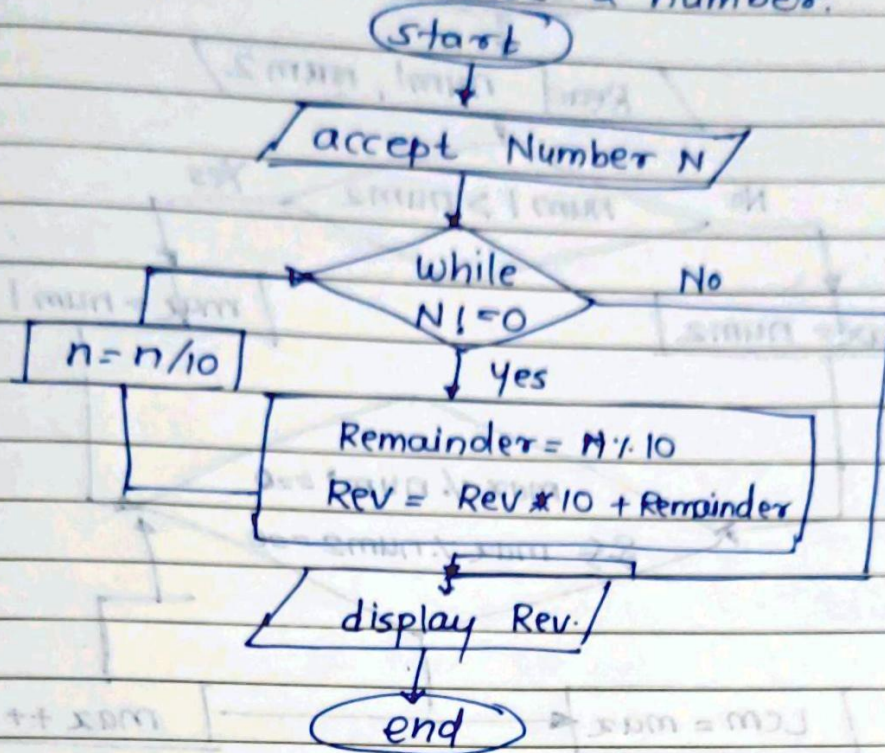 a number.
start
accept Number N
while
N!=0
No
n=n/10
Yes
Remainder= N%10
Rev = Rev*10 + Remainder
display Rev.
end